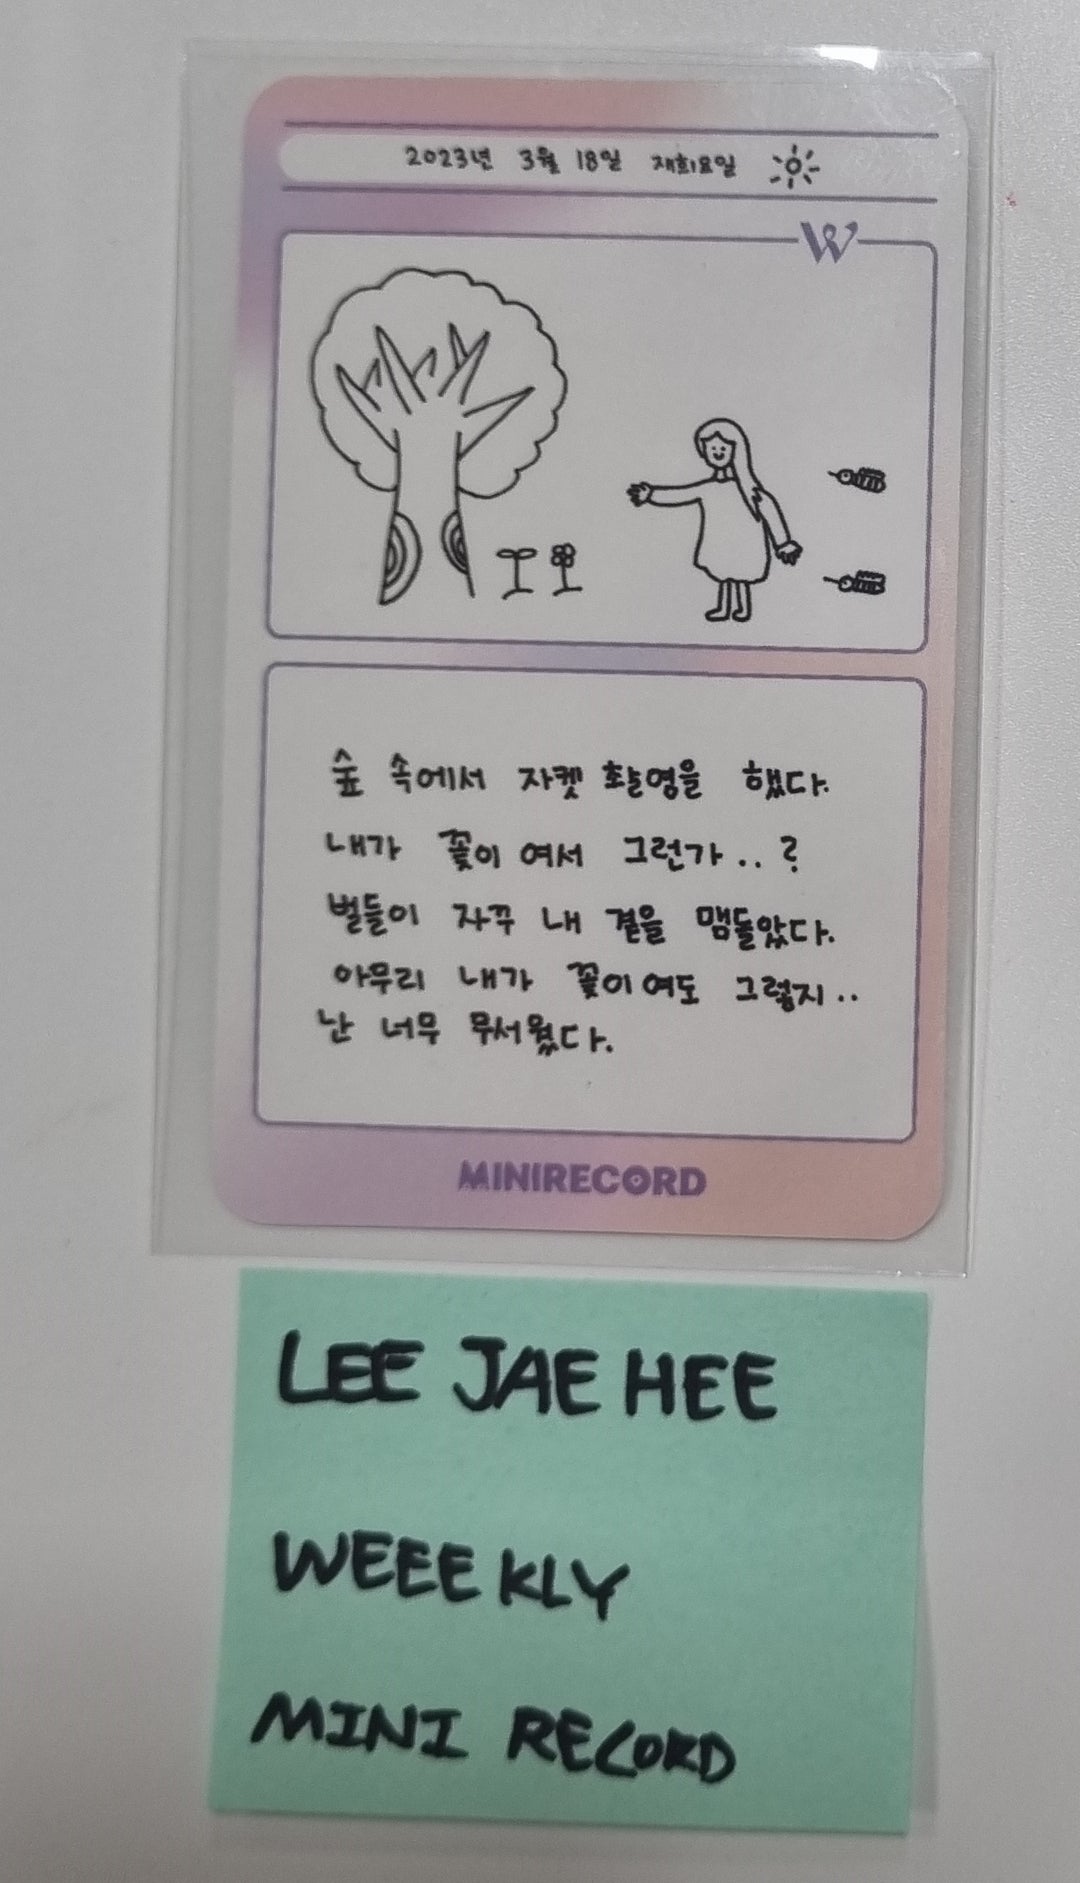 2023년 3월 18일 재희요일
W
숲 속에서 자켓 촬영을 했다.
내가 꽃이 여서 그런가..?
벌들이 자꾸 내 곁을 맴돌았다.
아무리 내가 꽃이여도 그렇지..
난 너무 무서웠다.
MINIRECORD
LEE JAE HEE
WEEEKLY
MINI RECORD